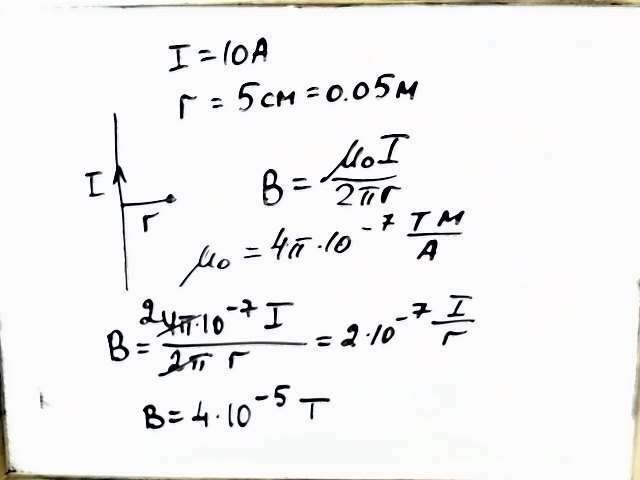 I = 10A
r = 5см = 0.05м
I
r
B = μ₀I / 2πr
μ₀ = 4π·10⁻⁷ Тм / А
B = 2 4π·10⁻⁷ I / 2π r = 2·10⁻⁷ I / r
B = 4·10⁻⁵ T